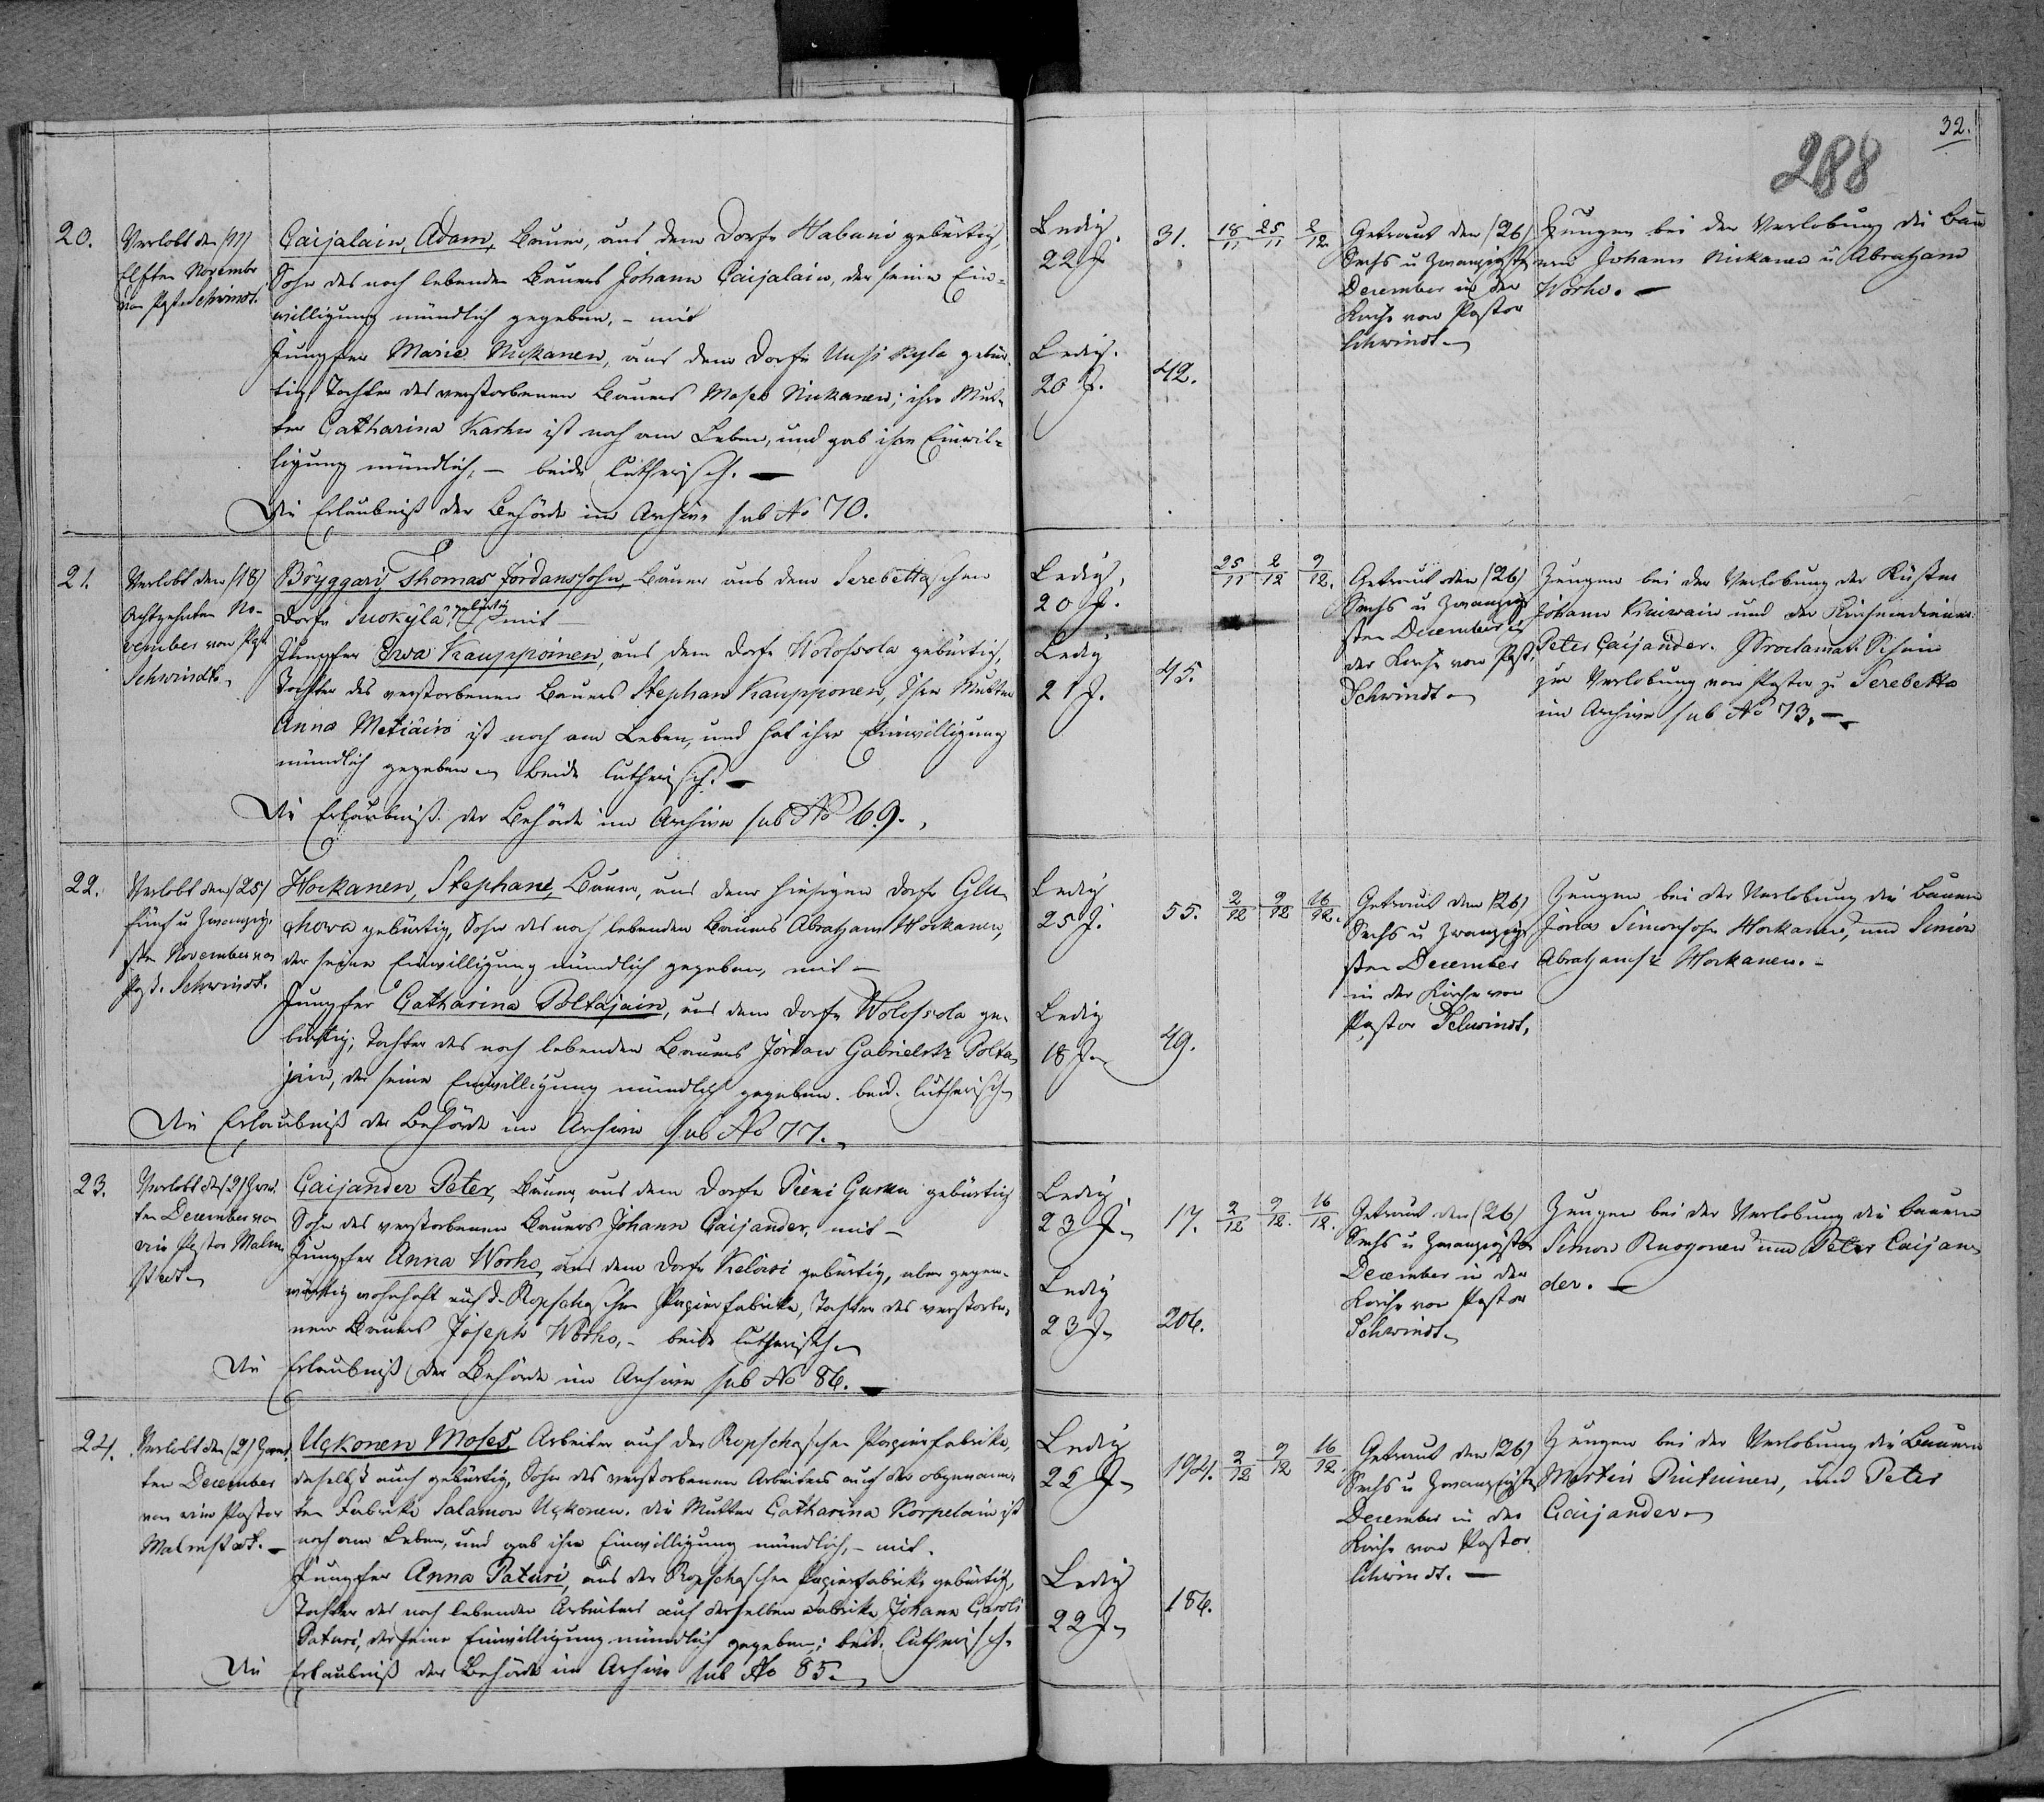 32.
288
20.
Verlobt den (11)
Elften November
von Past. Schwindt.
Caijalain, Adam, Bauer, aus dem Dorfe Habani gebürtig,
Sohn des noch lebenden Bauers Johann Caijalain, der seine Ein-
willigung mündlich gegeben, – mit
Jungfer Marie Nukanen, aus dem Dorfe Uusi Kyla gebür-
tig, Tochter des verstorbenen Bauers Moses Nukanen; ihre Mut-
ter Catharina Karhu ist noch am Leben, und gab ihre Einwil-
ligung mündlich, – beide lutherisch. –
Die Erlaubniß der Behörde im Archive sub No 70.
Ledig.
22 J.
Ledig.
20 J.
31.
42.
18/11 25/11 2/12
Getraut den (26)
Sechs u Zwanzigsten
December in der
Kirche von Pastor
Schwindt.
Zeugen bei der Verlobung die Bau
ern Johann Nukanen u Abraham
Worho. –
21.
Verlobt den (18)
Achtzehnten No-
vember von Past.
Schwindt.
Böyggari, Thomas Jordanssohn, Bauer aus dem Serebettaschen
Dorfe Suokylä gebürtig mit –
Jungfer Ewa Kauppoinen, aus dem Dorfe Wolossola gebürtig,
Tochter des verstorbenen Bauers Stephan Kaupponen, Ihre Mutter
Anna Metiäin ist noch am Leben, und hat ihre Einwilligung
mündlich gegeben beide lutherisch. –
Die Erlaubniß der Behörde im Archive sub No 69.
Ledig,
20 J.
Ledig
21 J.
45.
25/11 2/12 9/12.
Getraut den (26)
Sechs u Zwanzig
sten December in
der Kirche von Past.
Schwindt
Zeugen bei der Verlobung der Küster
Johann Kaiwain und der Kirchendiener
Peter Caijander. Proclamat. Schein
zur Verlobung vom Pastor zu Serebetta
im Archive sub No 73. –
22.
Verlobt den (25)
fünf u Zwanzig-
sten November von
Past. Schwindt.
Horkanen, Stephan, Bauer, aus dem hiesigen Dorfe Glu
chowa gebürtig, Sohn des noch lebenden Bauers Abraham Horkanen,
der seine Einwilligung mündlich gegeben, mit –
Jungfer Catharina Poltajain, aus dem Dorfe Wolossola ge-
bürtig; Tochter des noch lebenden Bauers Jordan Gabrielstr Polta
jain, der seine Einwilligung mündlich gegeben. beid. lutherisch
Die Erlaubniß der Behörde im Archive sub No 77.
Ledig
25 J.
Ledig
18 J.
55.
49.
2/12 9/12 16/12.
Getraut den (26)
Sechs u Zwanzig
sten December
in der Kirche von
Pastor Schwindt,
Zeugen bei der Verlobung die Bauern
Jonas Simonsohn Horkanen, und Simon
Horkanen. –
23.
Verlobt den (2) Zwei-
ten December von
vice Pastor Malm
stedt
Caijander Peter, Bauer, aus dem Dorfe Pieni Gurka gebürtig
Sohn des verstorbenen Bauers Johann Caijander, mit –
Jungfer Anna Worho, aus dem Dorfe Kelosi gebürtig, aber gegen-
wärtig wohnhaft auf d. Ropschaschen Papierfabrike, Tochter des verstorbe-
nen Bauers Joseph Worho, – beide lutherisch
Die Erlaubniß der Behörde im Archive sub No 86. –
Ledig
23 J.
Ledig
23 J.
17.
206.
2/12 9/12. 16/12.
Getraut den (26)
Sechs u Zwanzigsten
December in der
Kirche von Pastor
Schwindt
Zeugen bei der Verlobung die Bauern
Simon Ruogonen und Peter Caijan
der. –
24.
Verlobt den (2) Zwei
ten December
von vice Pastor
Malmstedt. –
Uckonen Moses, Arbeiter auf der Ropschaschen Papierfabrike,
daselbst auch gebürtig, Sohn des verstorbenen Arbeiters auf der obgenann-
ten Fabrike Salamon Uckonen. Die Mutter Catharina Korpelain ist
noch am Leben, und gab ihre Einwilligung mündlich, – mit
Jungfer Anna Paturi, aus der Ropschaschen Papierfabrike gebürtig,
Tochter des noch lebenden Arbeiters auf derselben Fabrike Johann Caroli
Paturi, der seine Einwilligung mündlich gegeben; beid. lutherisch.
Die Erlaubniß der Behörde im Archive sub No 85.
Ledig
25 J.
Ledig
22 J.
194.
186.
2/12 9/12 16/12.
Getraut den (26)
Sechs u Zwanzigsten
December in der
Kirche von Pastor
Schwindt. –
Zeugen bei der Verlobung die Bauern
Martin Putuinen, und Peter
Caijander